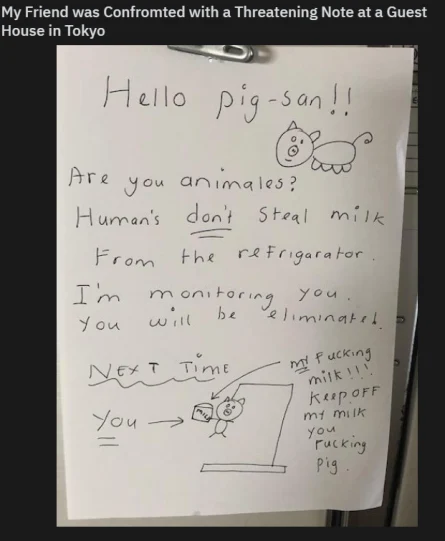 My Friend was Confromted with a Threatening Note at a Guest
House in Tokyo
Hello pig-san!!
Are you animales?
Human's don't steal milk
From the refrigarator.
I'm monitoring you.
You will be eliminated.
NEXT TIME
You →
milk
my Fucking
milk!!!
Keep OFF
my milk
you
Fucking
Pig.